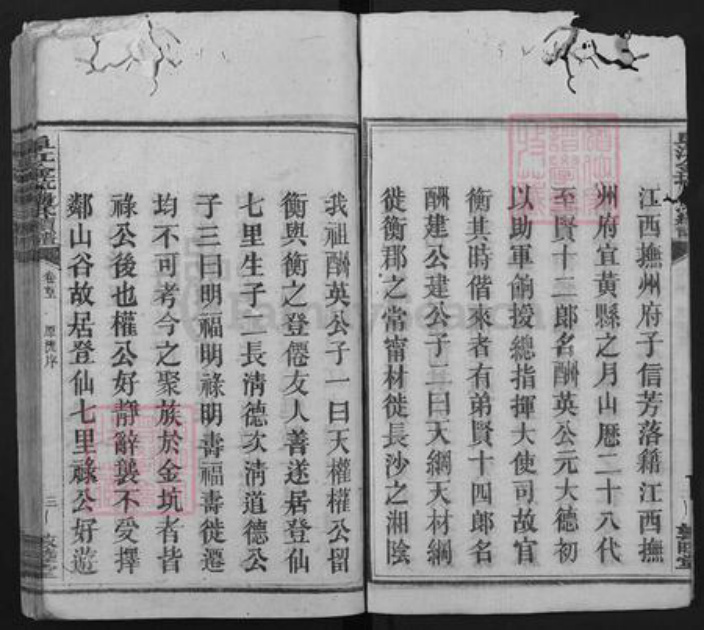 江西撫州府子信芳落籍江西撫
州府宜黃縣之月山歷二十八代
至賢十二郎名酬英公元大德初
以助軍餉授總指揮大使司故官
衡其時偕來者有弟賢十四郎名
酬建公建公子二曰天綱天材綱
徙衡郡之常甯材徙長沙之湘陰
我祖酬英公子一曰天權權公留
衡與衡之登僊友人善遂居登仙
七里生子二長清德次清道德公
子三曰明福明祿明壽福壽徙遷
均不可考今之聚族於金坑者皆
祿公後也權公好靜辭襲不受擇
鄰山谷故居登仙七里祿公好遊
卷首
原流序
三